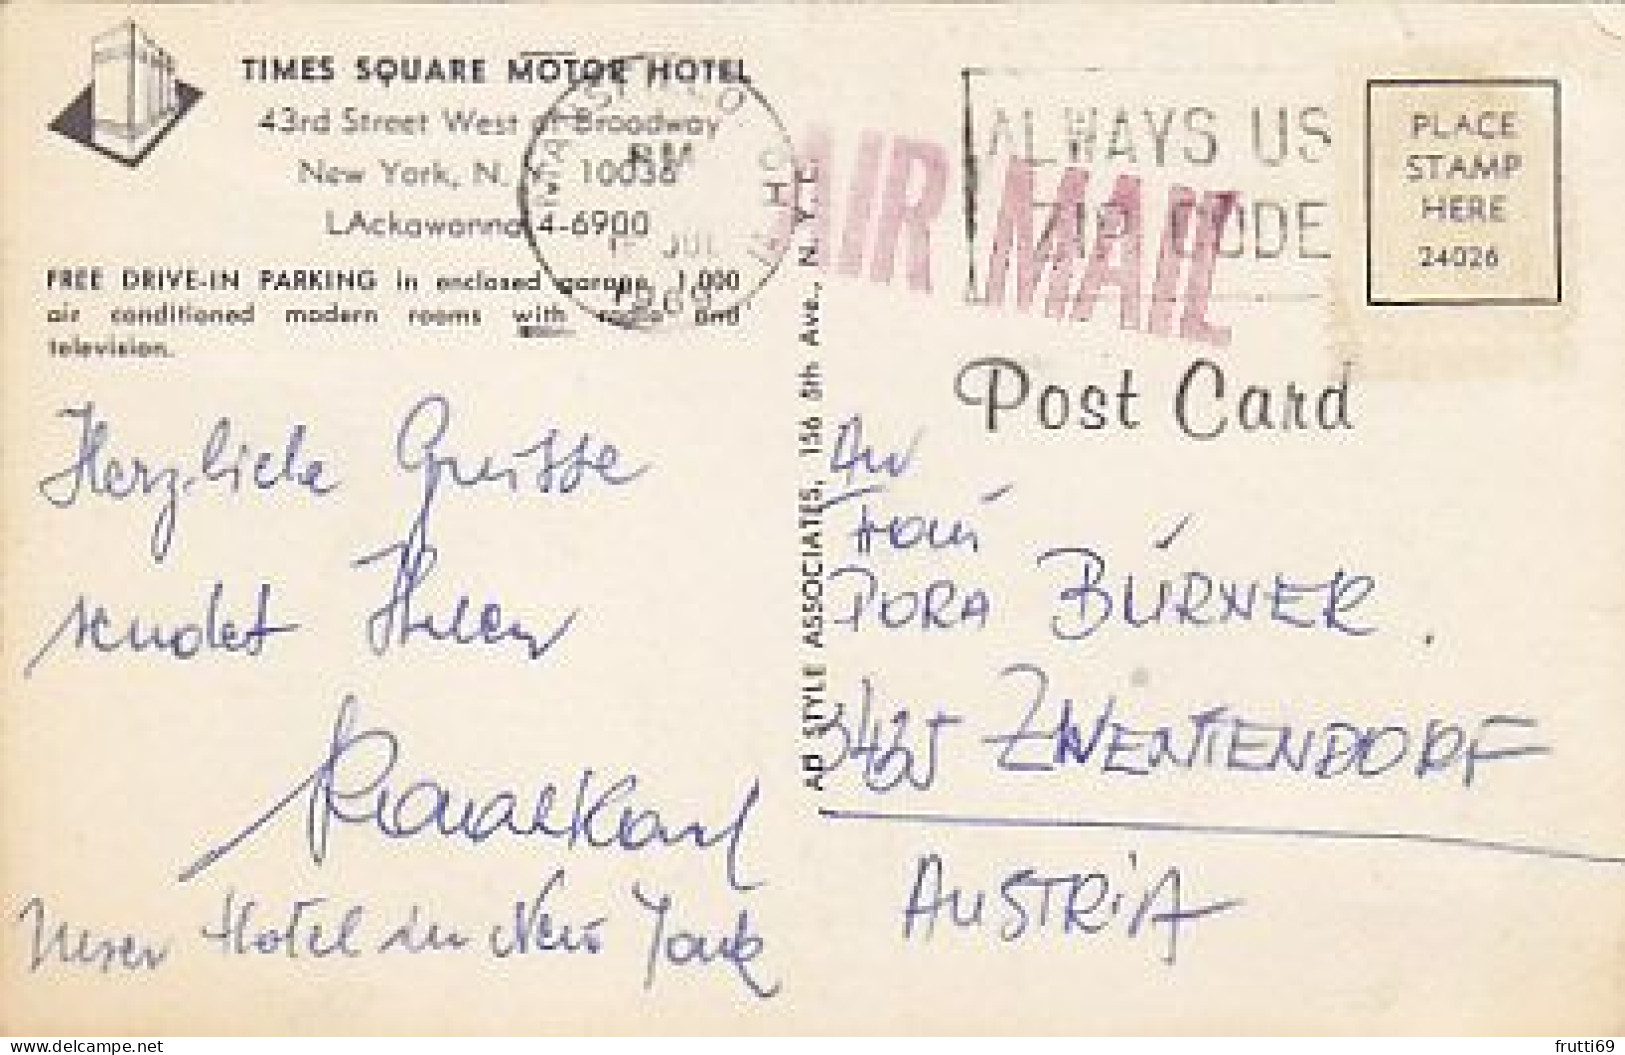 TIMES SQUARE MOTOR HOTEL
43rd Street West of Broadway
New York, N. Y. 10036
LAckawanna 4-6900
FREE DRIVE-IN PARKING in enclosed garage. 1,000
air conditioned modern rooms with radio and
television.
PM
JUL
1969
IDAHO
ALWAYS US
ZIP CODE
AIR MAIL
PLACE
STAMP
HERE
24026
Post Card
AD STYLE ASSOCIATES, 156 5th Ave., N. Y. C.
Herzliche Grüsse
sendet Ihnen
Unser Hotel in New York
An
PORA BÚRNER
3435 ZWENTENDORF
AUSTRIA
www.delcampe.net
frutti69